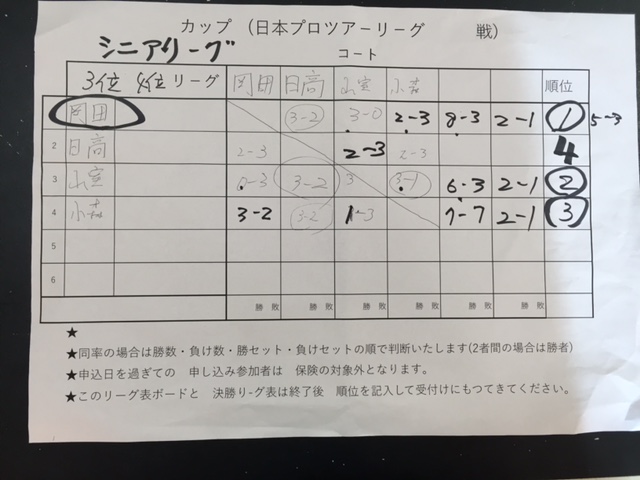 カップ （日本プロツアーリーグ 戦）
シニアリーグ
コート
3位 4位 リーグ 岡田 日高 山室 小森 順位
岡田 3-2 3-0 2-3 8-3 2-1 1 5-3
2 日高 2-3 2-3 2-3 4
3 山室 0-3 3-2 3-1 6-3 2-1 2
4 小森 3-2 3-2 1-3 7-7 2-1 3
5
6
勝 敗 勝 敗 勝 敗 勝 敗 勝 敗 勝 敗
★
★同率の場合は勝数・負け数・勝セット・負けセットの順で判断いたします(2者間の場合は勝者)
★申込日を過ぎての 申し込み参加者は 保険の対象外となります。
★このリーグ表ボードと 決勝り-グ表は終了後 順位を記入して受付けにもつてきてください。